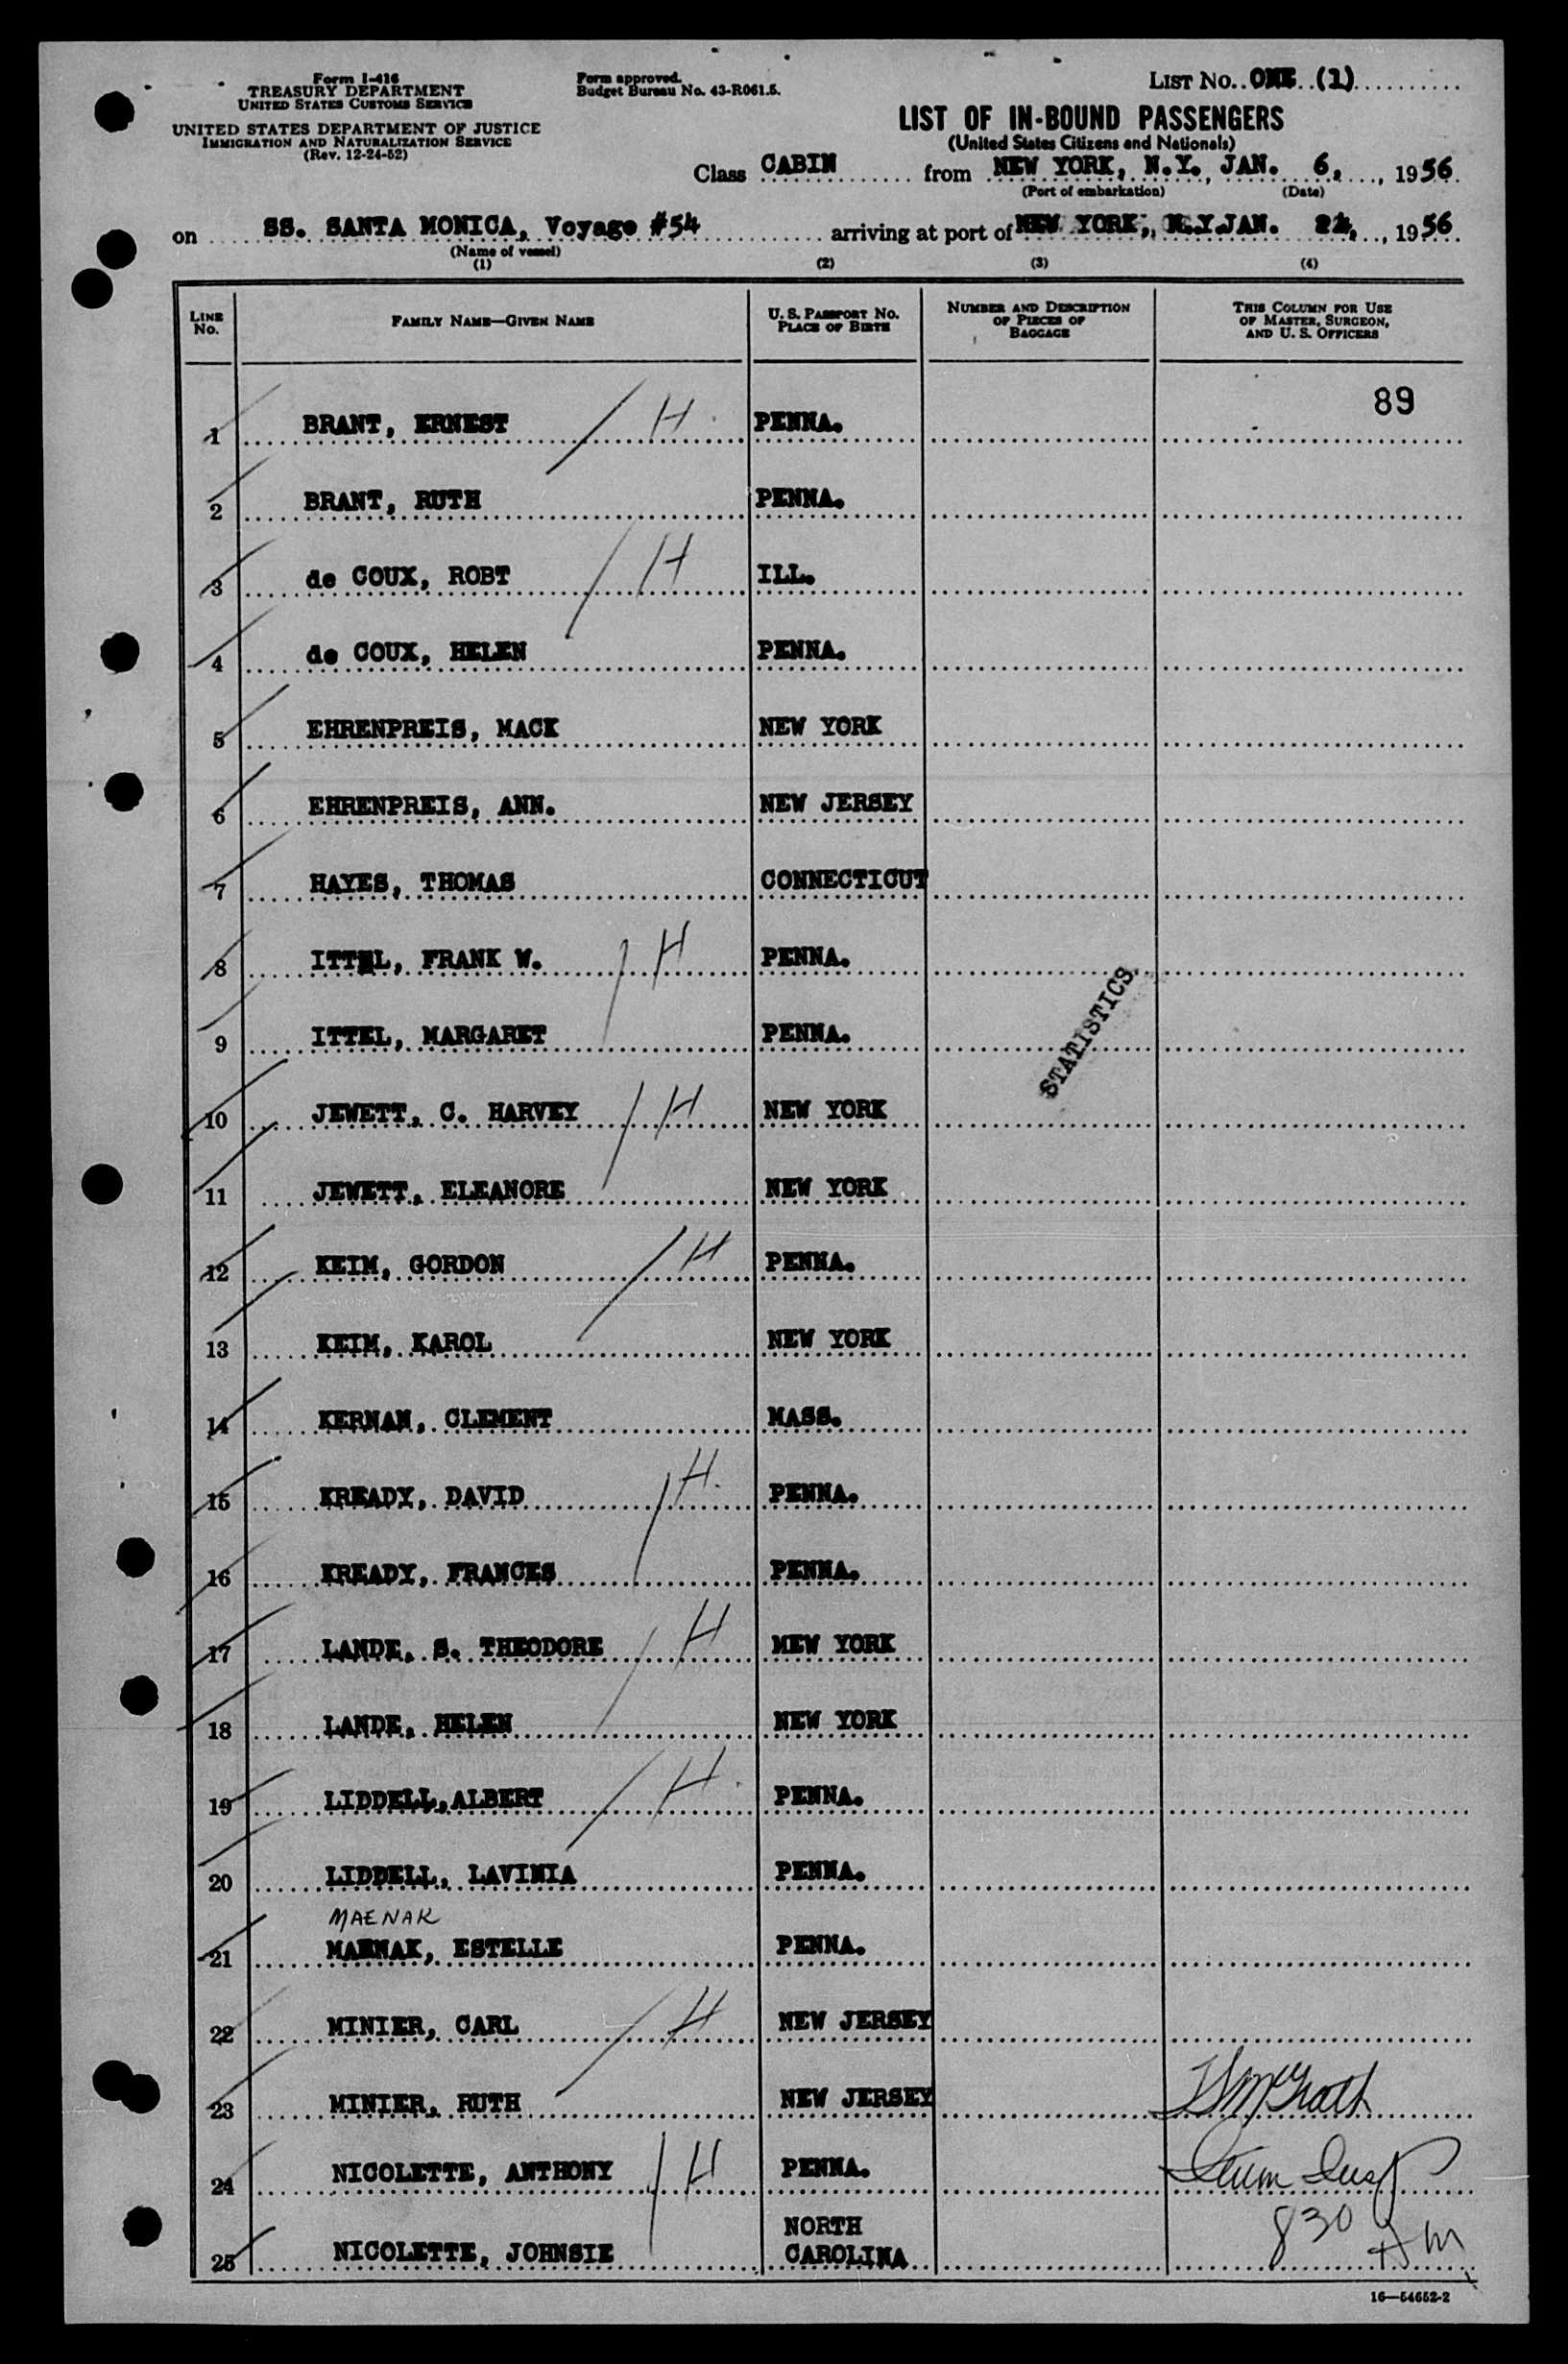 Form I-416
TREASURY DEPARTMENT
UNITED STATES CUSTOMS SERVICE
UNITED STATES DEPARTMENT OF JUSTICE
IMMIGRATION AND NATURALIZATION SERVICE
(Rev. 12-24-52)
Form approved.
Budget Bureau No. 43-R061.5.
LIST NO. ONE (1)
LIST OF IN-BOUND PASSENGERS
(United States Citizens and Nationals)
Class CABIN from NEW YORK, N.Y., JAN. 6, 1956
(Port of embarkation) (Date)
on SS. SANTA MONICA, Voyage #54 arriving at port of NEW YORK, N.Y. JAN. , 1956
(Name of vessel)
(1) (2) (3) (4)
LINE NO. FAMILY NAME—GIVEN NAME U. S. PASSPORT NO. PLACE OF BIRTH NUMBER AND DESCRIPTION OF PIECES OF BAGGAGE THIS COLUMN FOR USE OF MASTER, SURGEON, AND U. S. OFFICERS
89
1 BRANT, ERNEST H PENNA.
2 BRANT, RUTH PENNA.
3 de COUX, ROBT H ILL.
4 de COUX, HELEN PENNA.
5 EHRENPREIS, MACK NEW YORK
6 EHRENPREIS, ANN. NEW JERSEY
7 HAYES, THOMAS CONNECTICUT
8 ITTEL, FRANK W. H PENNA.
STATISTICS
9 ITTEL, MARGARET PENNA.
10 JEWETT, C. HARVEY H NEW YORK
11 JEWETT, ELEANORE NEW YORK
12 KEIM, GORDON H PENNA.
13 KEIM, KAROL NEW YORK
14 KERNAN, CLEMENT MASS.
15 KREADY, DAVID H PENNA.
16 KREADY, FRANCES PENNA.
17 LANDE, S. THEODORE H NEW YORK
18 LANDE, HELEN NEW YORK
19 LIDDELL, ALBERT H PENNA.
20 LIDDELL, LAVINIA PENNA.
MAENAK
21 MAENAK, ESTELLE PENNA.
22 MINIER, CARL H NEW JERSEY
23 MINIER, RUTH NEW JERSEY McGrath
24 NICOLETTE, ANTHONY H PENNA. Insp
25 NICOLETTE, JOHNSIE NORTH CAROLINA 830 AM
16—54652-2